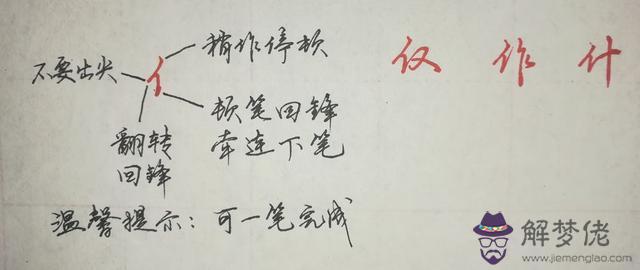 稍作停顿
仅 作 什
不要出尖
亻
顿笔回锋
牵连下笔
翻转
回锋
温馨提示：可一笔完成
解梦佬
www.jiemenglao.com